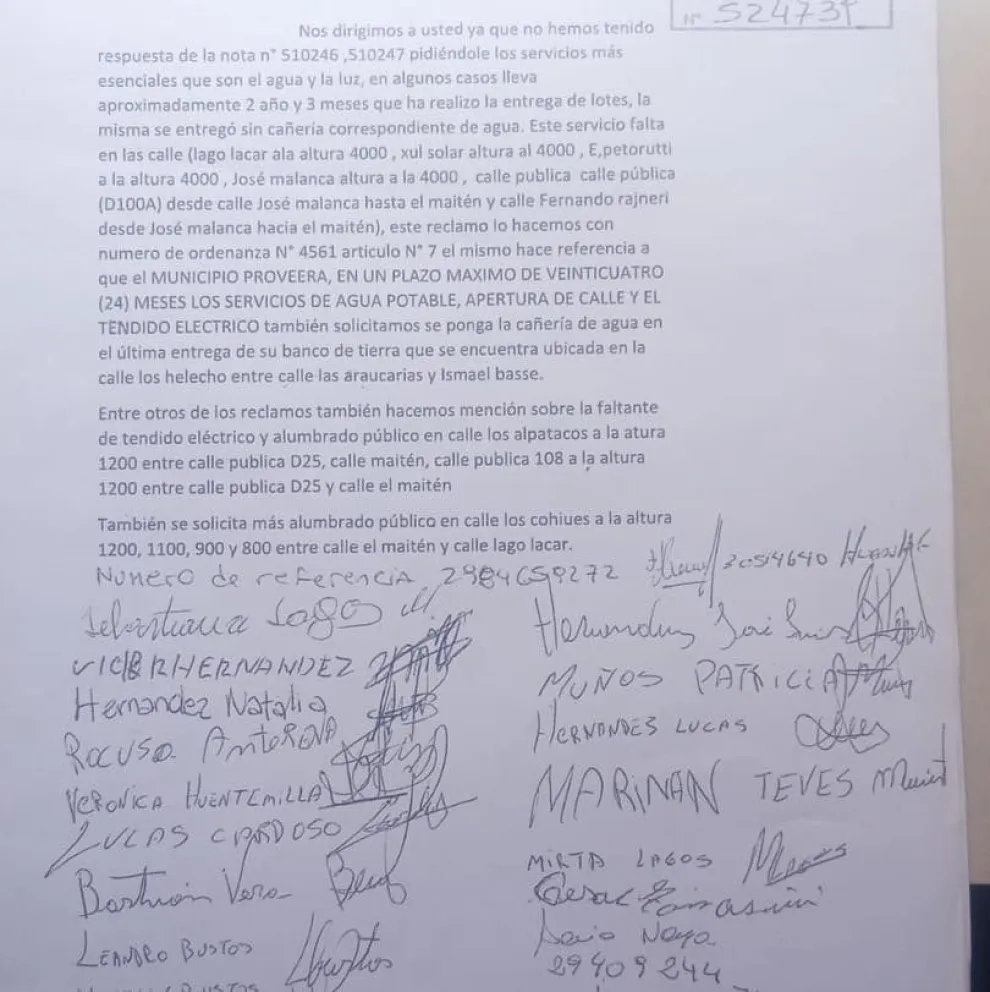 N° 524739
Nos dirigimos a usted ya que no hemos tenido
respuesta de la nota n° 510246 ,510247 pidiéndole los servicios más
esenciales que son el agua y la luz, en algunos casos lleva
aproximadamente 2 año y 3 meses que ha realizo la entrega de lotes, la
misma se entregó sin cañería correspondiente de agua. Este servicio falta
en las calle (lago lacar ala altura 4000 , xul solar altura al 4000 , E,petorutti
a la altura 4000 , José malanca altura a la 4000 , calle publica calle pública
(D100A) desde calle José malanca hasta el maitén y calle Fernando rajneri
desde José malanca hacia el maitén), este reclamo lo hacemos con
numero de ordenanza N° 4561 articulo N° 7 el mismo hace referencia a
que el MUNICIPIO PROVEERA, EN UN PLAZO MAXIMO DE VEINTICUATRO
(24) MESES LOS SERVICIOS DE AGUA POTABLE, APERTURA DE CALLE Y EL
TENDIDO ELECTRICO también solicitamos se ponga la cañería de agua en
el última entrega de su banco de tierra que se encuentra ubicada en la
calle los helecho entre calle las araucarias y Ismael basse.
Entre otros de los reclamos también hacemos mención sobre la faltante
de tendido eléctrico y alumbrado público en calle los alpatacos a la atura
1200 entre calle publica D25, calle maitén, calle publica 108 a la altura
1200 entre calle publica D25 y calle el maitén
También se solicita más alumbrado público en calle los cohiues a la altura
1200, 1100, 900 y 800 entre calle el maitén y calle lago lacar.
Numero de referencia 2984659272
30514640
Sebastiana Lagos
Hernandez José Luis
VICTOR HERNANDEZ
MUÑOS PATRICIA
Hernandez Natalia
HERNANDES LUCAS
ANTERONA
VERONICA HUENTEMILLA
MARINAN TEVES
LUCAS CARDOSO
MIRTA LAGOS
Bastian Vera
Cesar
LEANDRO BUSTOS
29409244
BUSTOS